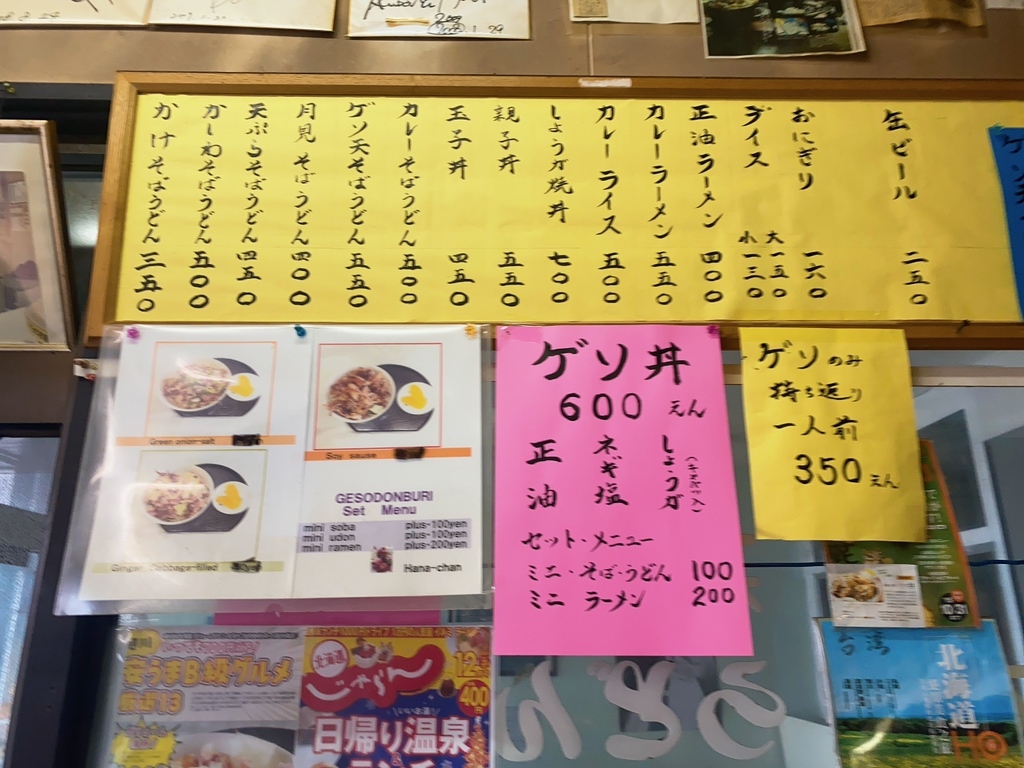 缶ビール 二五〇
おにぎり 一六〇
ライス 大一五〇 小一三〇
正油ラーメン 四〇〇
カレーラーメン 五五〇
カレーライス 五〇〇
しょうが焼丼 七〇〇
親子丼 五五〇
玉子丼 四五〇
カレーそばうどん 五〇〇
ゲソ天そばうどん 五五〇
月見そばうどん 四〇〇
天ぷらそばうどん 四五〇
かしわそばうどん 五〇〇
かけそばうどん 三五〇
Green onion-salt
Soy sause
Ginger Cabbage-filled
GESODONBURI
Set Menu
mini soba plus-100yen
mini udon plus-100yen
mini ramen plus-200yen
Hana-chan
ゲソ丼
600えん
正油
ネギ塩
しょうガ
(キャベツ入)
セット・メニュー
ミニ・そば・うどん 100
ミニ ラーメン 200
ゲソのみ
持ち返り
一人前
350えん
安うまB級グルメ
厳選13
北海道
じゃらん
12
400
日帰り温泉
ランチ
うどん
10/31
台湾
北海道
HO